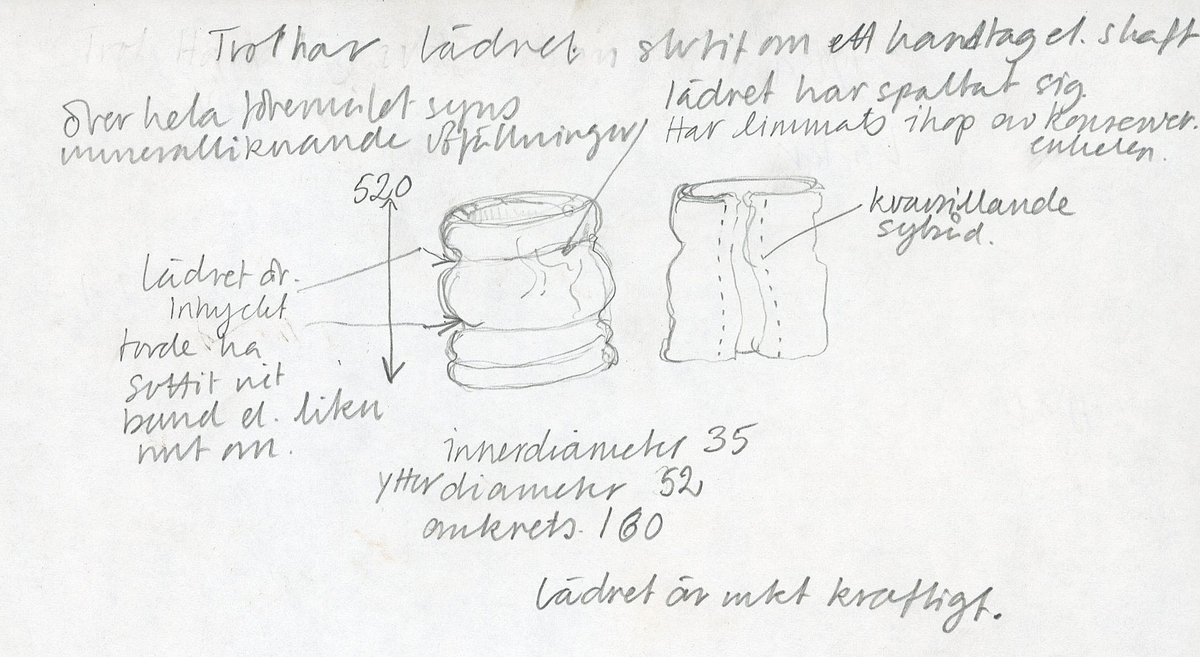 Trol har lädret slutit om ett handtag el. skaft
över hela föremålet syns
mineralliknande utfällningar
lädret har spaltat sig.
Har limmats ihop av konserver.
enheten.
520
kvarsittande
sytråd.
lädret är
intryckt
torde ha
suttit ett
band el. likn
runt om.
innerdiameter 35
ytterdiameter 52
omkrets. 160
lädret är mkt kraftigt.